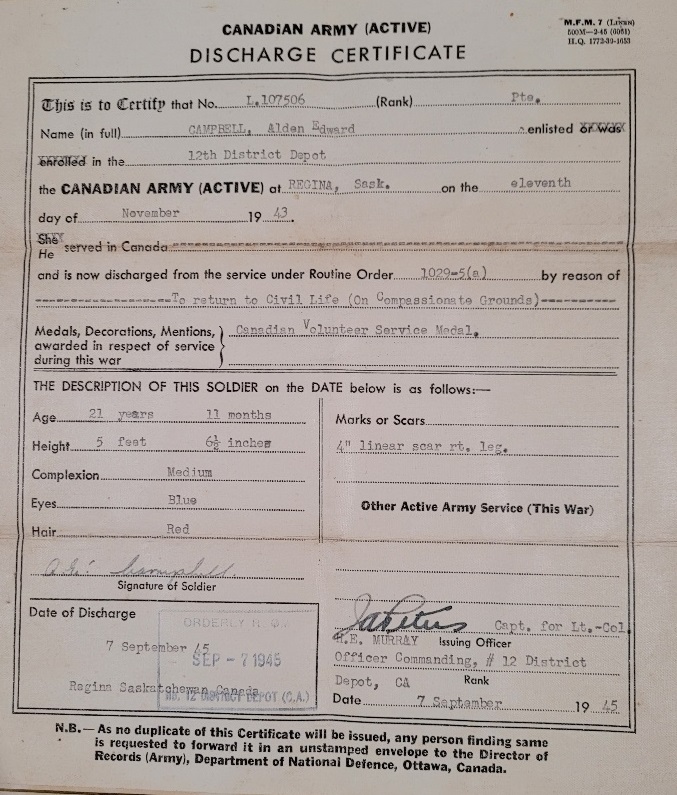 CANADIAN ARMY (ACTIVE)
DISCHARGE CERTIFICATE
M.F.M. 7
500M—2-45
H.Q. 1772-39-1653
This is to Certify that No. L.107506 (Rank) Pte.
Name (in full) CAMPBELL, Alden Edward enlisted or was
enrolled in the 12th District Depot
the CANADIAN ARMY (ACTIVE) at REGINA, Sask. on the eleventh
day of November 19 43.
She
He served in Canada
and is now discharged from the service under Routine Order 1029-5(a) by reason of
To return to Civil Life (On Compassionate Grounds)
Medals, Decorations, Mentions, Canadian Volunteer Service Medal.
awarded in respect of service
during this war
THE DESCRIPTION OF THIS SOLDIER on the DATE below is as follows:—
Age 21 years 11 months
Height 5 feet 6½ inches
Complexion Medium
Eyes Blue
Hair Red
Campbell
Signature of Soldier
Marks or Scars
4" linear scar rt. leg.
Other Active Army Service (This War)
Date of Discharge
7 September 45
Regina Saskatchewan Canada
ORDERLY
SEP - 7 1945
NO. 12 DISTRICT DEPOT (C.A.)
Capt. for Lt.-Col.
H.E. MURRAY Issuing Officer
Officer Commanding, # 12 District
Depot, CA Rank
Date 7 September 19 45
N.B.—As no duplicate of this Certificate will be issued, any person finding same
is requested to forward it in an unstamped envelope to the Director of
Records (Army), Department of National Defence, Ottawa, Canada.